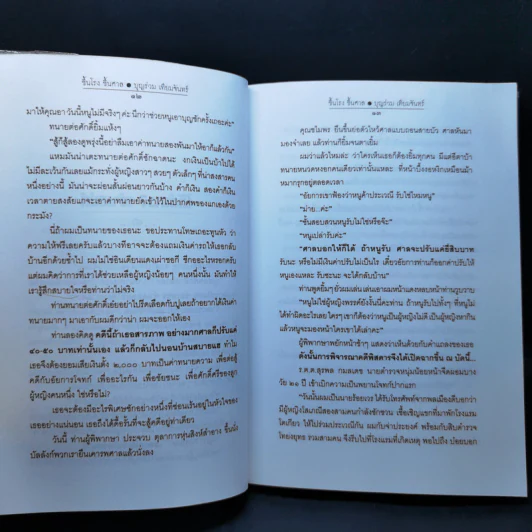 ขึ้นโรง ขึ้นศาล ● บุญร่วม เทียมจันทร์
๑๒
มาให้คุณอา วันนี้หนูไม่มีจริงๆ ค่ะ นึกว่าช่วยหนูเอาบุญซักครั้งเถอะค่ะ”
ทนายต่อศักดิ์ยิ้มแห้งๆ
“สู้ก็สู้ลองดูพรุ่งนี้อย่าลืมเอาค่าทนายสองพันมาให้อาก็แล้วกัน”
แหมมันน่าเตะทนายต่อศักดิ์ซักฉาดนะ งกเงินเป็นบ้าไปได้
ไม่มีละเว้นกันเลยแม้กระทั่งผู้หญิงสาวๆ สวยๆ ตัวเล็กๆ ที่น่าสงสารคน
หนึ่งอย่างนี้ มันน่าจะผ่อนสั้นผ่อนยาวกันบ้าง ค่ากีเงิน สองค่ากีเงิน
เวลาตายลงสั่งแกจะเอาค่าทนายยัดเข้าไว้ในปากศพของแกเองด้วย
กระมัง?
นี่ถ้าผมเป็นทนายของเธอนะ ขอประทานโทษเถอะทุนหัว ว่า
ความให้ฟรีเลยครับแล้วบางทีอาจจะต้องแถมเงินค่ารถให้เธอกลับ
บ้านอีกด้วยซ้ำไป ผมไม่ใช่อินเดียนแดงเผ่าอกกี ชีกออะไรหรอกครับ
แต่ผมคิดว่าการที่เราได้ช่วยเหลือผู้หญิงน้อยๆ คนหนึ่งนั้น มันทำให้
เรารู้สึกสบายใจหรือท่านว่าไม่จริง
ท่านทนายต่อศักดิ์เอ๋ยอย่าไปรีดเลือดกับปูเลยถ้าอยากได้เงินค่า
ทนายมากๆ มาเอากับผมดีกว่าน่า ผมจะออกให้เอง
ท่านลองคิดดู คดีนี้ถ้าเธอสารภาพ อย่างมากศาลก็ปรับแค่
๔๐-๕๐ บาทเท่านั้นเอง แล้วก็กลับไปนอนบ้านสบายแฮ ทำไม
เธอจึงต้องยอมเสียเงินตั้ง ๒,๐๐๐ บาทเป็นค่าทนายความ เพื่อต่อสู้
คดีกับอัยการโจทก์ เพื่ออะไรกัน เพื่อชัยชนะ เพื่อศักดิ์ศรีของลูก
ผู้หญิงคนหนึ่ง ใช่หรือไม่?
เธอจะต้องมีอะไรพิเศษซักอย่างหนึ่งที่ซ่อนเร้นอยู่ในหัวใจของ
เธออย่างแน่นอน เธอถึงได้ดื้อรั้นที่จะสู้คดีอยู่ท่าเดียว
วันนี้ ท่านผู้พิพากษา ประจวบ ตุลาการหุ่นสิงห์สำอาง ขึ้นนั่ง
บัลลังก์พวกเรายืนเคารพศาลแล้วนั่งลง
ขึ้นโรง ขึ้นศาล ● บุญร่วม เทียมจันทร์
๑๓
คุณชมพร ยืนขึ้นย่อตัวไหว้ศาลแบบถอนสายบัว ศาลหันมา
มองจำเลย แล้วท่านก็ยิ้มจนตาเยิ้ม
ผมว่าแล้วไหมล่ะ ว่าใครเห็นเธอก็ต้องยิ้มทุกคน มีแต่อีตาบ้า
ทนายหนวดหงอกคนเดียวเท่านั้นแหละ ที่หน้าบึ้งงอหงิกเหมือนม้า
หมากรุกอยู่ตลอดเวลา
“อัยการเขาฟ้องว่าหนูค้าประเวณี รับใช่ไหมหนู”
“ม่าย..ค่ะ”
“ชั้นสอบสวนหนูรับไม่ใช่หรือจ๊ะ”
“หนูเปล่ารับค่ะ”
“ศาลบอกให้ก็ได้ ถ้าหนูรับ ศาลจะปรับแค่ยี่สิบบาท
รับนะ หรือไม่มีเงินค่าปรับไม่เป็นไร เดี๋ยวอัยการท่านก็ออกค่าปรับให้
หนูเองแหละ รับซะนะ จะได้กลับบ้าน”
ท่านพูดยิ้มๆ ยั่วผมเล่น เล่นเอาผมหน้าแดงหลบหน้าท่านวูบวาบ
“หนูไม่ใช่ผู้หญิงพรรค์ยังงั้นนี่คะท่าน ถ้าหนูรับไปทั้งๆ ที่หนูไม่
ได้ทำผิดอะไรเลย ใครๆ เขาก็ต้องว่าหนูเป็นผู้หญิงไม่ดี เป็นผู้หญิงหากิน
แล้วหนูจะมองหน้าใครเขาได้เล่าคะ”
ผู้พิพากษาพยักหน้าช้าๆ แสดงว่าเห็นด้วยกับคำแถลงของเธอ
ดังนั้นการพิจารณาคดีพิสดารจึงได้เปิดฉากขึ้น ณ บัดนี้...
ร.ต.ต.สุรพล กมลเดช นายตำรวจหนุ่มน้อยหน้าจืดผอมบาง
วัย ๒๑ ปี เข้าเบิกความเป็นพยานโจทก์ปากแรก
“วันนั้นผมเป็นนายร้อยเวร ได้รับโทรศัพท์จากพลเมืองดีบอกว่า
มีผู้หญิงโสเภณีสองสามคนกำลังชักชวน เชื้อเชิญแขกที่มาพักโรงแรม
โตเกียว ให้ไปร่วมประเวณีกัน ผมกับจ่าประยงค์ พร้อมกับสิบตำรวจ
ไทยงยุทธ รวมสามคน จึงรีบไปที่โรงแรมที่เกิดเหตุ พอไปถึง บ๋อยบอก